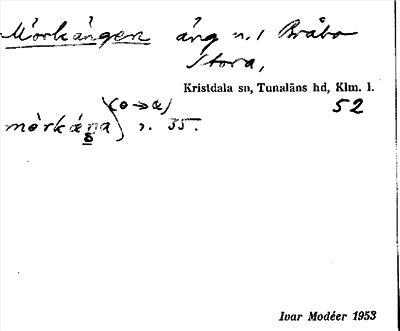 Mörkängen äng n. 1 Bråbo
Stora,
Kristdala sn, Tunaläns hd, Klm. l.
52
(o → a)
r. 35.
Ivar Modéer 1953